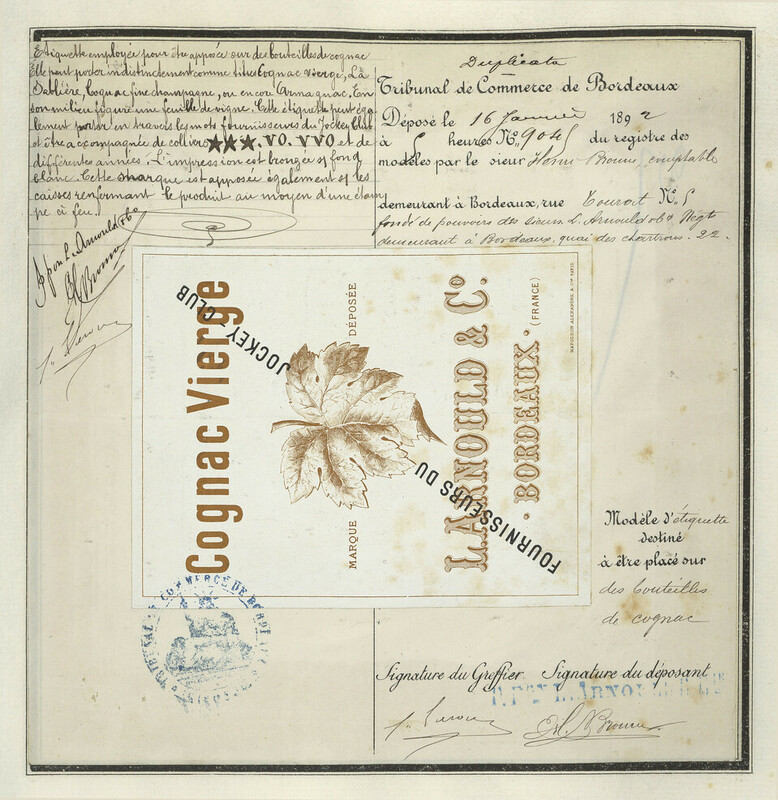 Etiquette employée pour être apposée sur des bouteilles de cognac
Elle peut porter indistinctement comme titres Cognac vierge, La
Sablière, Cognac fine champagne, ou encore Armagnac. En
son milieu figure une feuille de vigne. Cette étiquette peut éga
lement porter en travers les mots fournisseurs du Jockey Club
et être accompagnée de colliers ★★★. VO. VVO et de
différentes années. L'impression est bronzée s/ fond
blanc. Cette marque est apposée également s/ les
caisses renfermant le produit au moyen d'une étam
pe à feu.
Duplicata
Tribunal de Commerce de Bordeaux
Déposé le 16 Janvier 1892
à 5 heures No. 9045 du registre des
modèles par le sieur Henri Bronne, comptable
demeurant à Bordeaux, rue Tourat No. 5
fondé de pouvoirs des sieurs L. Arnould & Co Negts
demeurant à Bordeaux, quai des chartrons. 22.
pr pon L. Arnould & Co
H. Bronne
Cognac Vierge
MARQUE DÉPOSÉE
L. ARNOULD & Co.
· BORDEAUX · (FRANCE)
FOURNISSEURS DU JOCKEY-CLUB
TRIBUNAL DE COMMERCE DE BORDEAUX
Modèle d'étiquette
destiné
à être placé sur
des bouteilles
de cognac
Signature du Greffier
Signature du déposant
P. Pon L. ARNOULD
H. Bronne